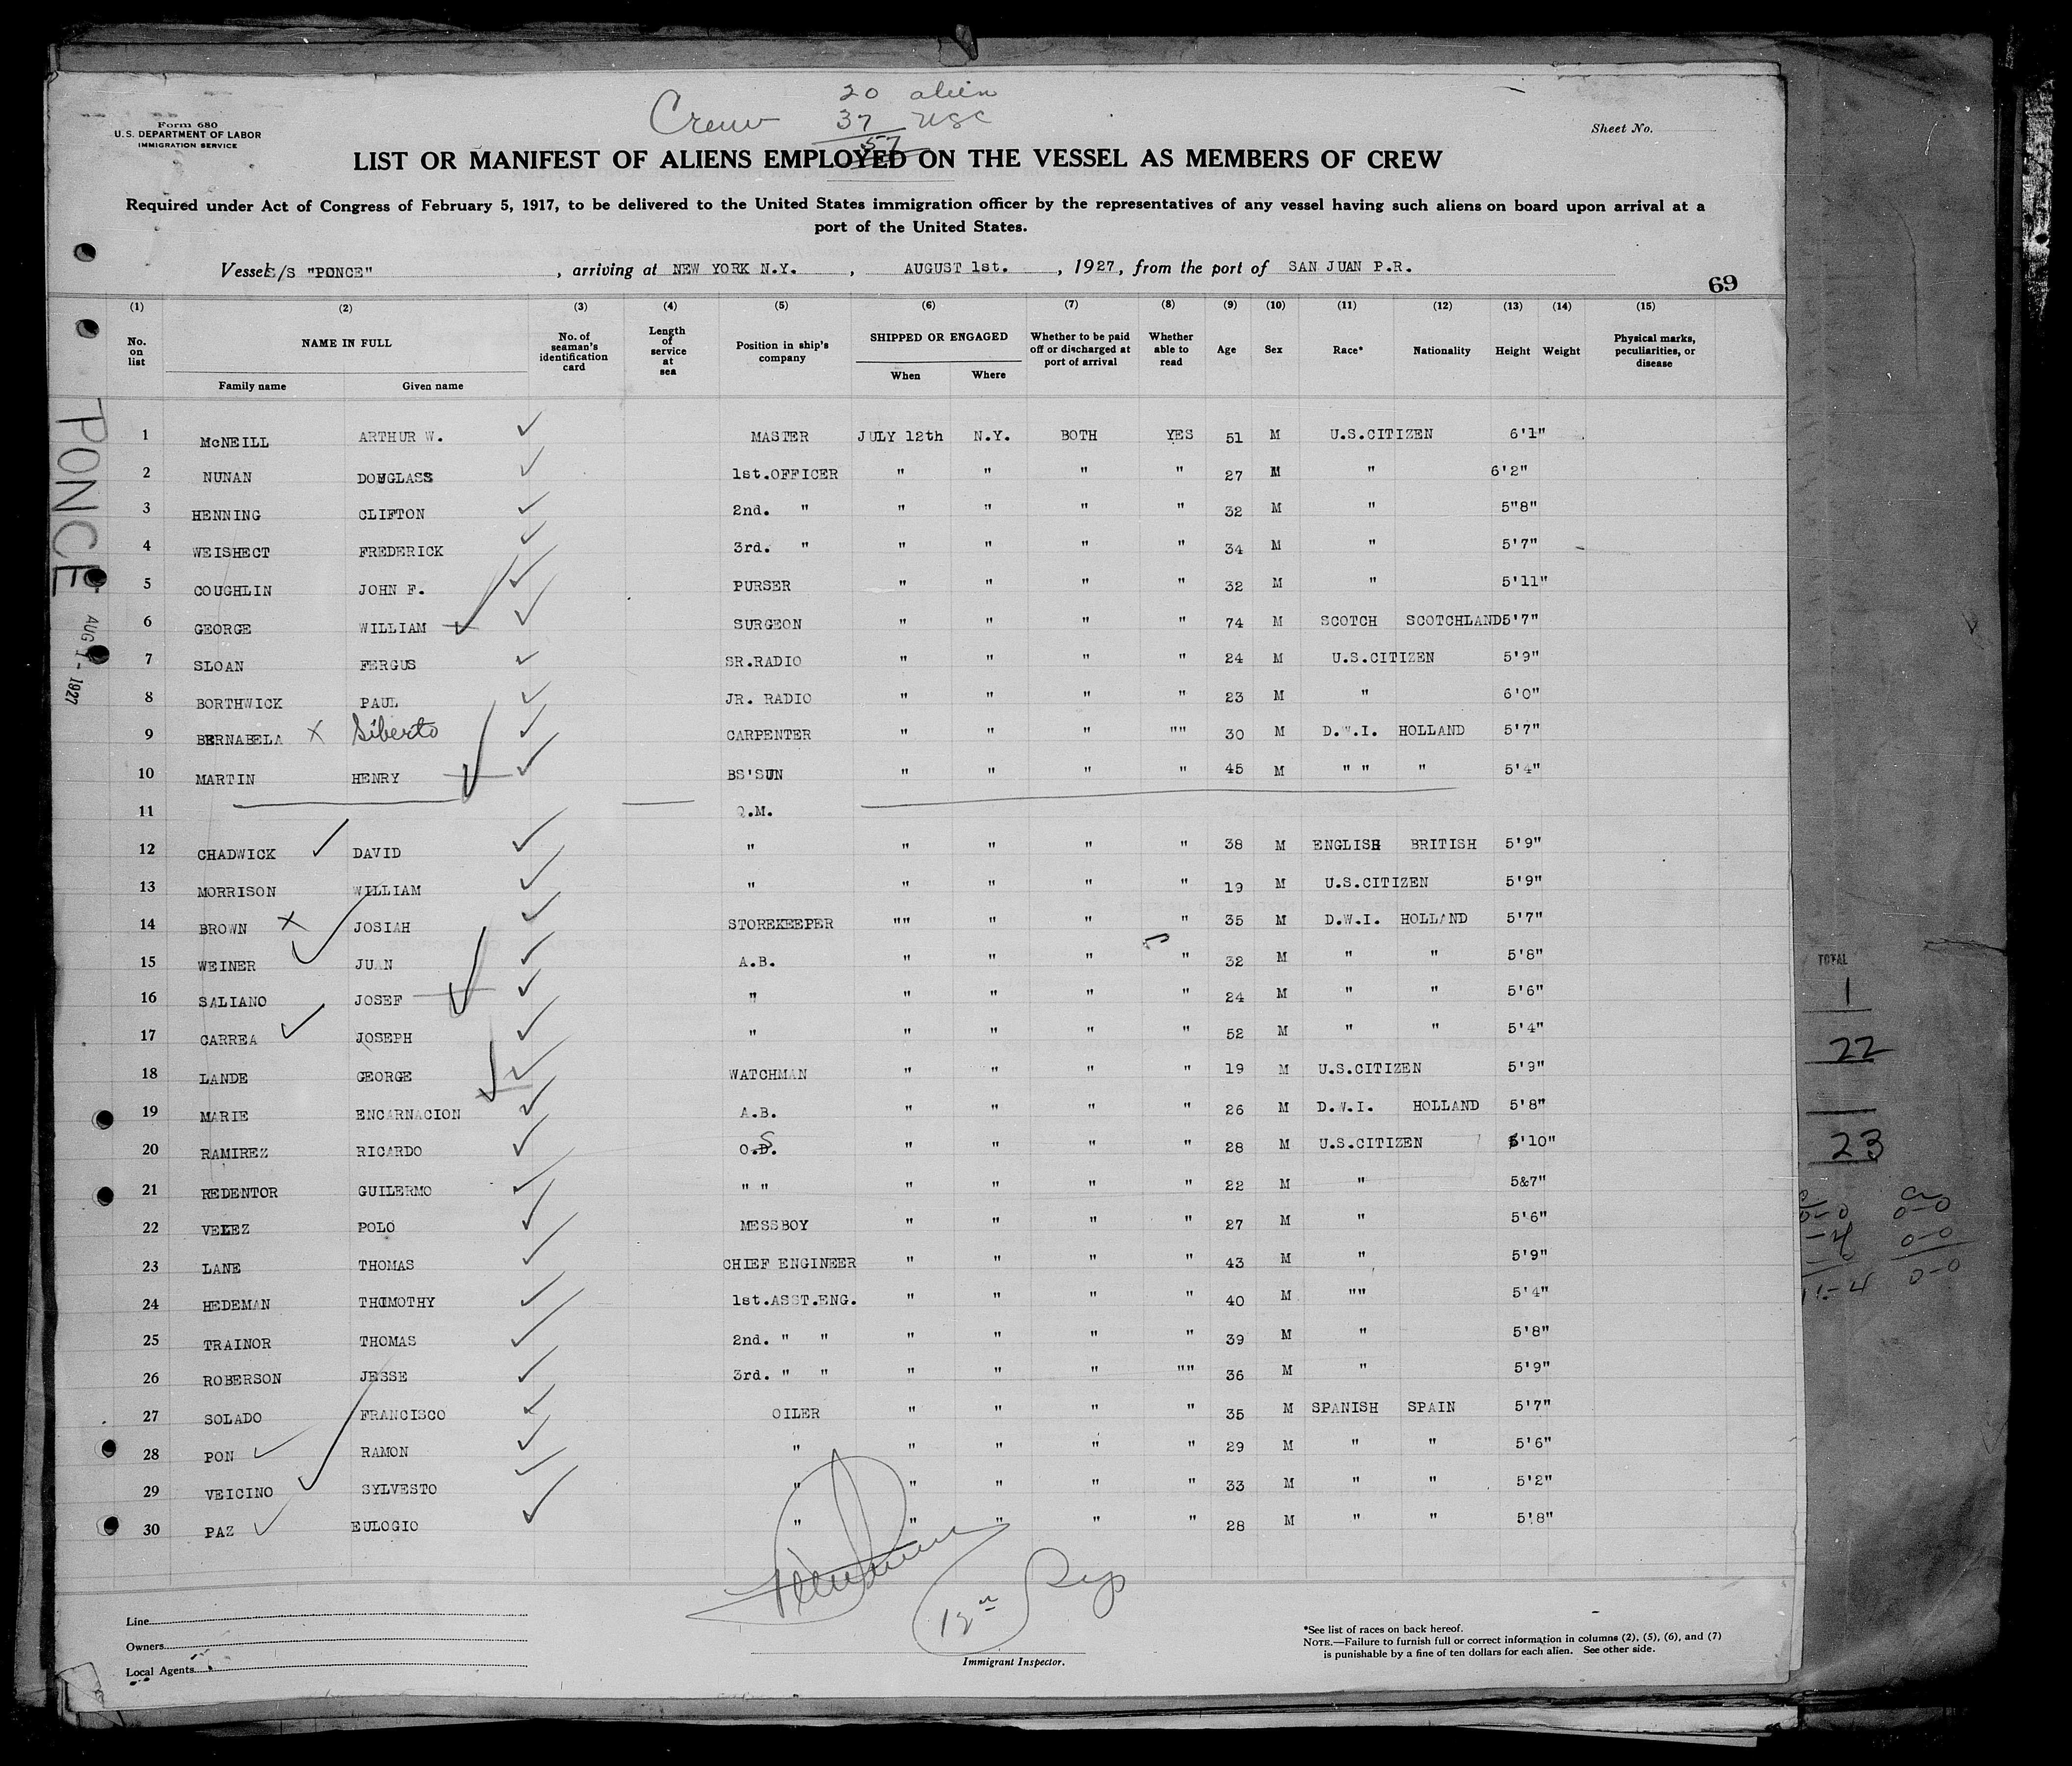 20 alien
Crew 37 USC
57
Form 680
U.S. DEPARTMENT OF LABOR
IMMIGRATION SERVICE
Sheet No.
LIST OR MANIFEST OF ALIENS EMPLOYED ON THE VESSEL AS MEMBERS OF CREW
Required under Act of Congress of February 5, 1917, to be delivered to the United States immigration officer by the representatives of any vessel having such aliens on board upon arrival at a
port of the United States.
Vessel S/S "PONCE", arriving at NEW YORK N.Y., AUGUST 1st., 1927, from the port of SAN JUAN P.R.
69
(1) (2) (3) (4) (5) (6) (7) (8) (9) (10) (11) (12) (13) (14) (15)
No. on list NAME IN FULL Family name Given name No. of seaman's identification card Length of service at sea Position in ship's company SHIPPED OR ENGAGED When Where Whether to be paid off or discharged at port of arrival Whether able to read Age Sex Race* Nationality Height Weight Physical marks, peculiarities, or disease
PONCE
AUG 1 - 1927
1 McNEILL ARTHUR W. MASTER JULY 12th N.Y. BOTH YES 51 M U.S.CITIZEN 6'1"
2 NUNAN DOUGLASS 1st.OFFICER " " " " 27 M " 6'2"
3 HENNING CLIFTON 2nd. " " " " " 32 M " 5"8"
4 WEISHECT FREDERICK 3rd. " " " " " 34 M " 5'7"
5 COUGHLIN JOHN F. PURSER " " " " 32 M " 5'11"
6 GEORGE WILLIAM SURGEON " " " " 74 M SCOTCH SCOTCHLAND 5'7"
7 SLOAN FERGUS SR.RADIO " " " " 24 M U.S.CITIZEN 5'9"
8 BORTHWICK PAUL JR. RADIO " " " " 23 M " 6'0"
9 BERNABELA X Siberto CARPENTER " " " "" 30 M D.W.I. HOLLAND 5'7"
10 MARTIN HENRY BS'SUN " " " " 45 M " " " 5'4"
11 Q.M.
12 CHADWICK DAVID " " " " " 38 M ENGLISH BRITISH 5'9"
13 MORRISON WILLIAM " " " " " 19 M U.S.CITIZEN 5'9"
14 BROWN X JOSIAH STOREKEEPER "" " " " 35 M D.W.I. HOLLAND 5'7"
15 WEINER JUAN A.B. " " " " 32 M " " 5'8"
16 SALIANO JOSEF " " " " " 24 M " " 5'6"
17 CARREA JOSEPH " " " " " 52 M " " 5'4"
18 LANDE GEORGE WATCHMAN " " " " 19 M U.S.CITIZEN 5'9"
19 MARIE ENCARNACION A.B. " " " " 26 M D.W.I. HOLLAND 5'8"
20 RAMIREZ RICARDO O.S. " " " " 28 M U.S.CITIZEN 5'10"
21 REDENTOR GUILERMO " " " " " " 22 M " 5&7"
22 VELEZ POLO MESSBOY " " " " 27 M " 5'6"
23 LANE THOMAS CHIEF ENGINEER " " " " 43 M " 5'9"
24 HEDEMAN THOMOTHY 1st.ASST.ENG. " " " " 40 M "" 5'4"
25 TRAINOR THOMAS 2nd. " " " " " " 39 M " 5'8"
26 ROBERSON JESSE 3rd. " " " " " "" 36 M " 5'9"
27 SOLADO FRANCISCO OILER " " " " 35 M SPANISH SPAIN 5'7"
28 PON RAMON " " " " " 29 M " " 5'6"
29 VEICINO SYLVESTO " " " " " 33 M " " 5'2"
30 PAZ EULOGIO " " " " " 28 M " " 5'8"
TOTAL
1
22
23
0-0
0-0
0-0
Line
Owners
Local Agents
Immigrant Inspector.
*See list of races on back hereof.
NOTE.—Failure to furnish full or correct information in columns (2), (5), (6), and (7)
is punishable by a fine of ten dollars for each alien. See other side.